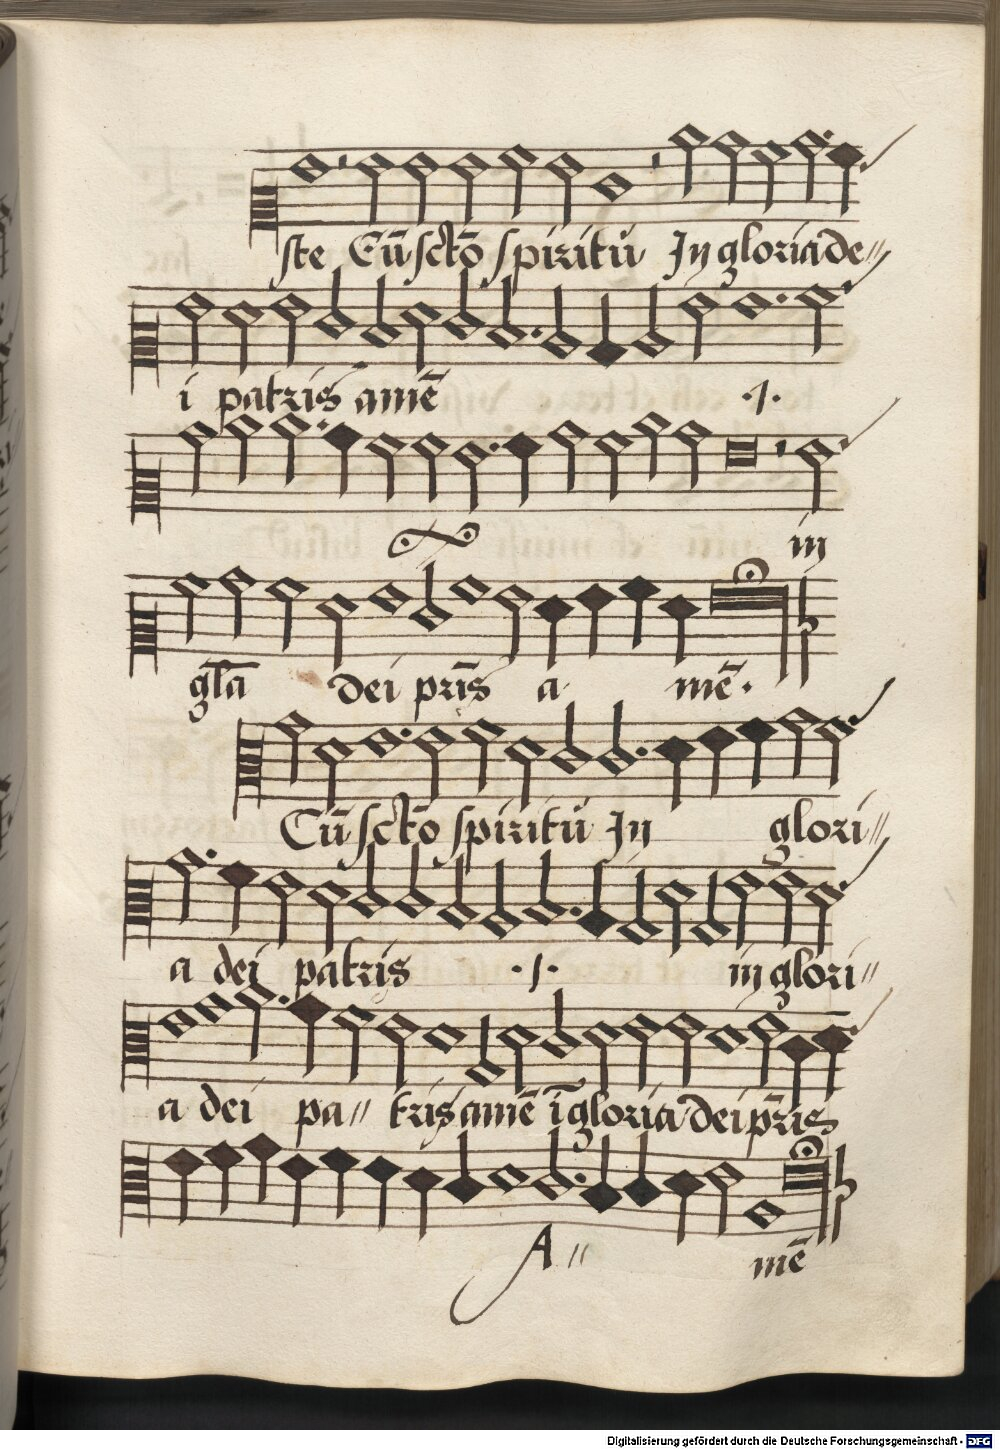 ste Cū sctō spiritū In gloria de〃
i patris amē ·j·
in
gl̄a dei pr̄is a mē·
Cū sctō spiritū In glori〃
a dei patris ·j· in glori〃
a dei pa〃 tris amē ī gloria dei pr̄is
A〃 mē
Digitalisierung gefördert durch die Deutsche Forschungsgemeinschaft - DFG